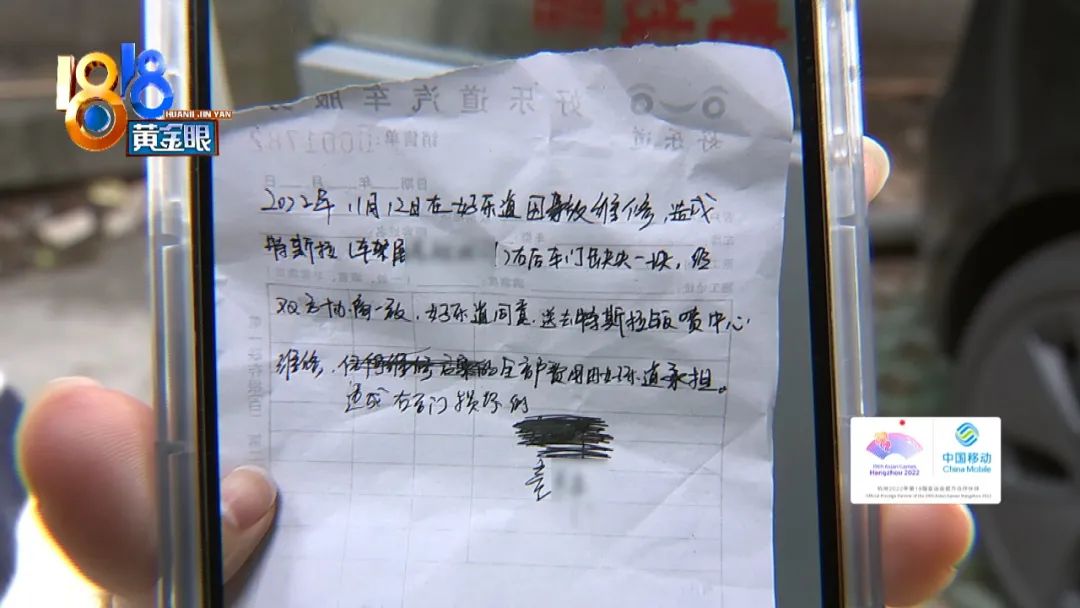 1818
HUANGJINYAN
黄金眼
好乐道汽车服务
好乐道
销售单 0001782
日期 年 月 日
2022年11月12日在好乐道因事故维修,造成
特斯拉(车架尾 )右后车门缺失一块,经
双方协商一致,好乐道同意送去特斯拉钣喷中心
维修,全部费用由好乐道承担。
造成右后门损坏的
19th Asian Games
Hangzhou 2022
中国移动
China Mobile
杭州2022年第19届亚运会官方合作伙伴
Official Prestige Partner of the 19th Asian Games Hangzhou 2022